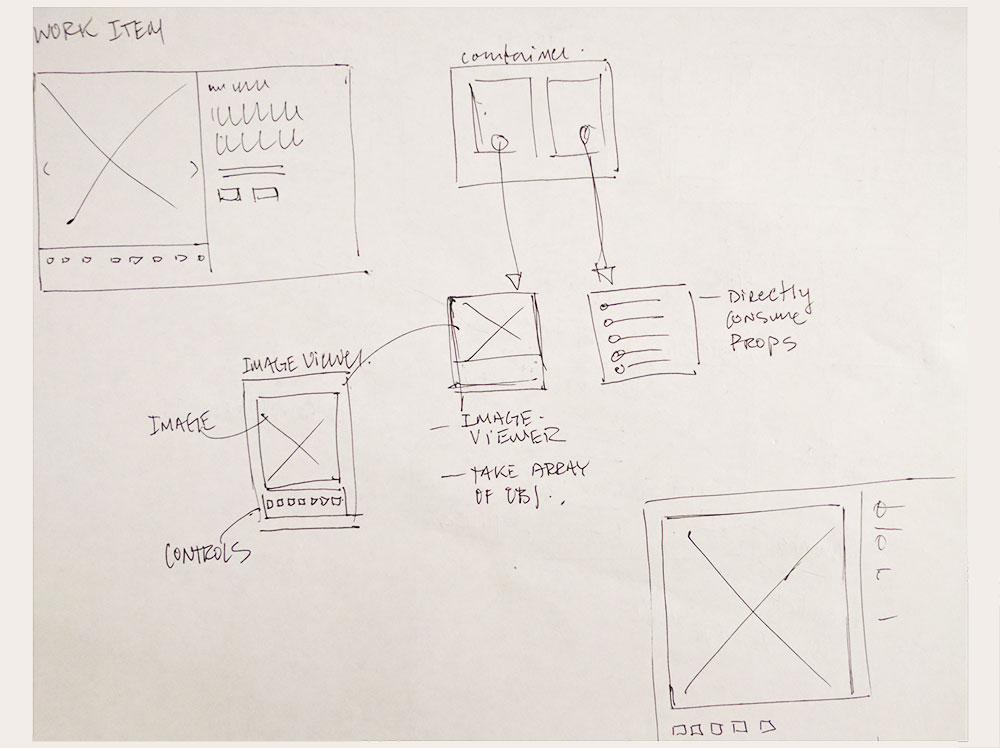 WORK ITEM
container.
DIRECTLY
CONSUME
PROPS
IMAGE VIEWER.
IMAGE
— IMAGE-
VIEWER
— TAKE ARRAY
OF OBJ..
CONTROLS